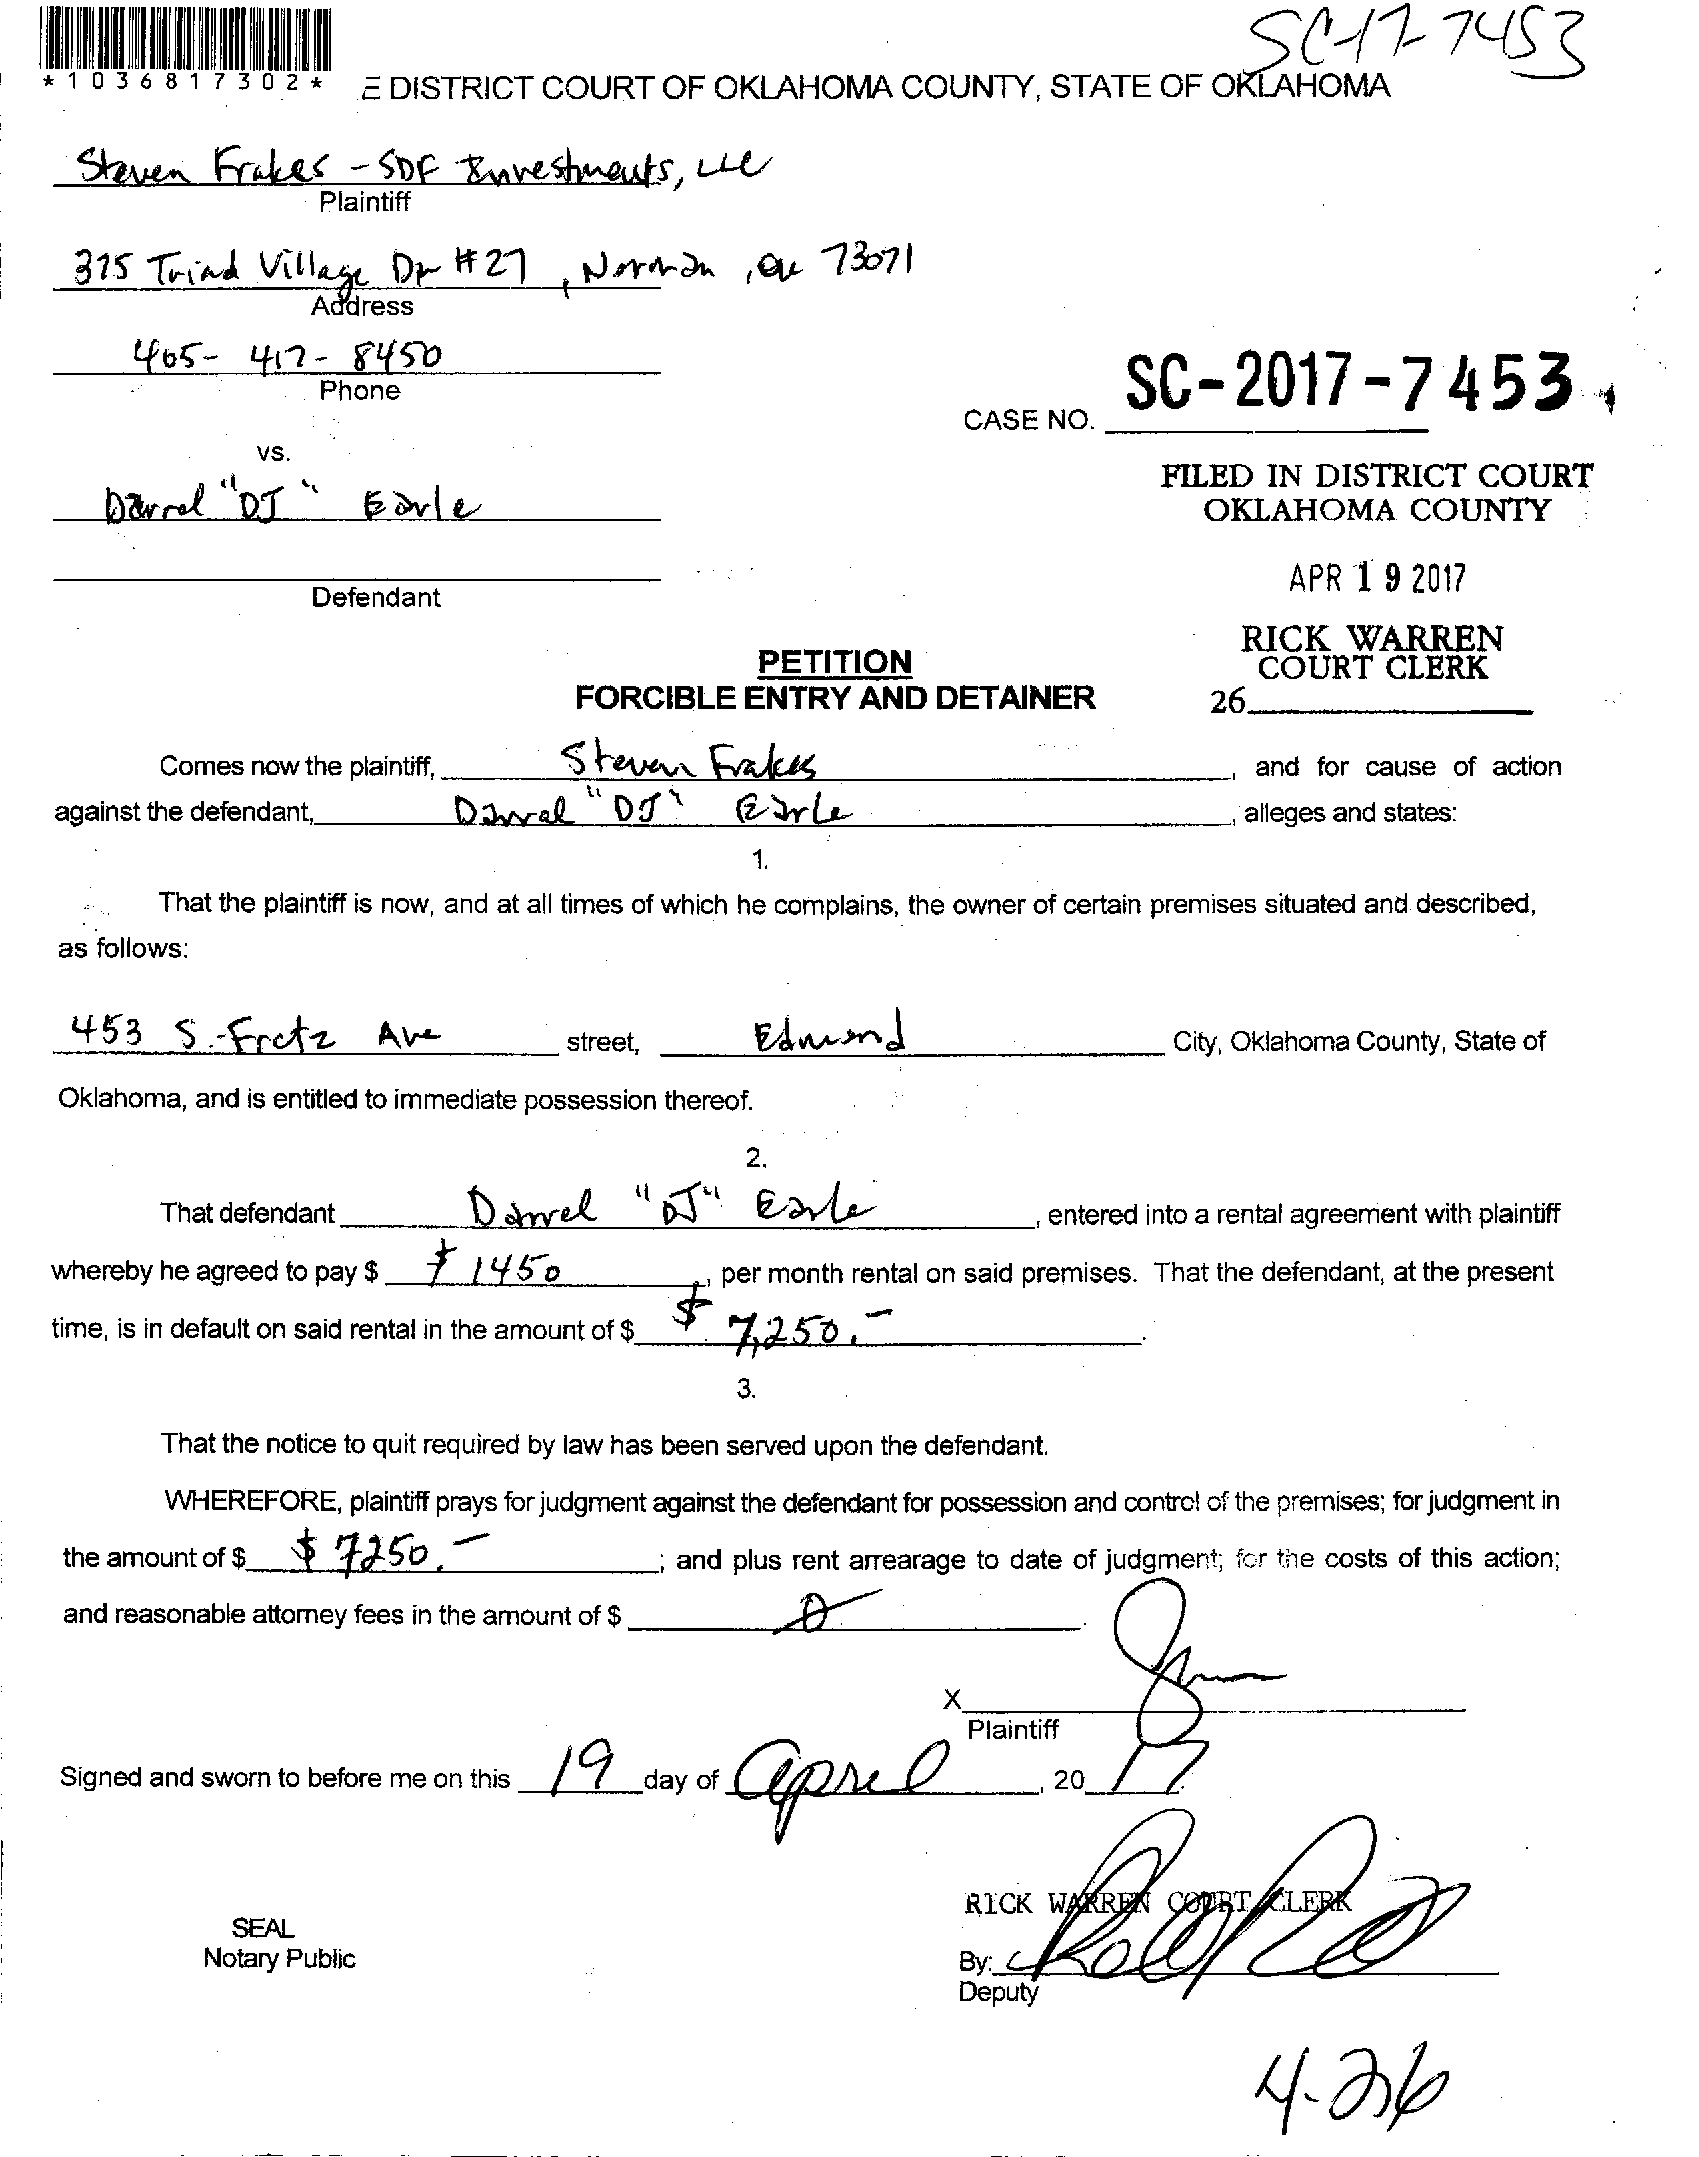 SC-17-7453
*1036817302*
E DISTRICT COURT OF OKLAHOMA COUNTY, STATE OF OKLAHOMA
Steven Frakes - SDF Investments, LLC
Plaintiff
375 Triad Village Dr #27, Norman, OK 73071
Address
405-417-8450
Phone
CASE NO. SC-2017-7453
vs.
FILED IN DISTRICT COURT
OKLAHOMA COUNTY
Darrel "DJ" Earle
APR 19 2017
Defendant
RICK WARREN
COURT CLERK
26
PETITION
FORCIBLE ENTRY AND DETAINER
Comes now the plaintiff, Steven Frakes, and for cause of action
against the defendant, Darrel "DJ" Earle, alleges and states:
1.
That the plaintiff is now, and at all times of which he complains, the owner of certain premises situated and described,
as follows:
453 S. Fretz Ave street, Edmond City, Oklahoma County, State of
Oklahoma, and is entitled to immediate possession thereof.
2.
That defendant Darrel "DJ" Earle, entered into a rental agreement with plaintiff
whereby he agreed to pay $ $1450, per month rental on said premises. That the defendant, at the present
time, is in default on said rental in the amount of $ $7,250.-.
3.
That the notice to quit required by law has been served upon the defendant.
WHEREFORE, plaintiff prays for judgment against the defendant for possession and control of the premises; for judgment in
the amount of $ $7250.-; and plus rent arrearage to date of judgment; for the costs of this action;
and reasonable attorney fees in the amount of $ 0.
X
Plaintiff
Signed and sworn to before me on this 19 day of April, 2017.
RICK WARREN COURT CLERK
SEAL
Notary Public
By:
Deputy
4-26